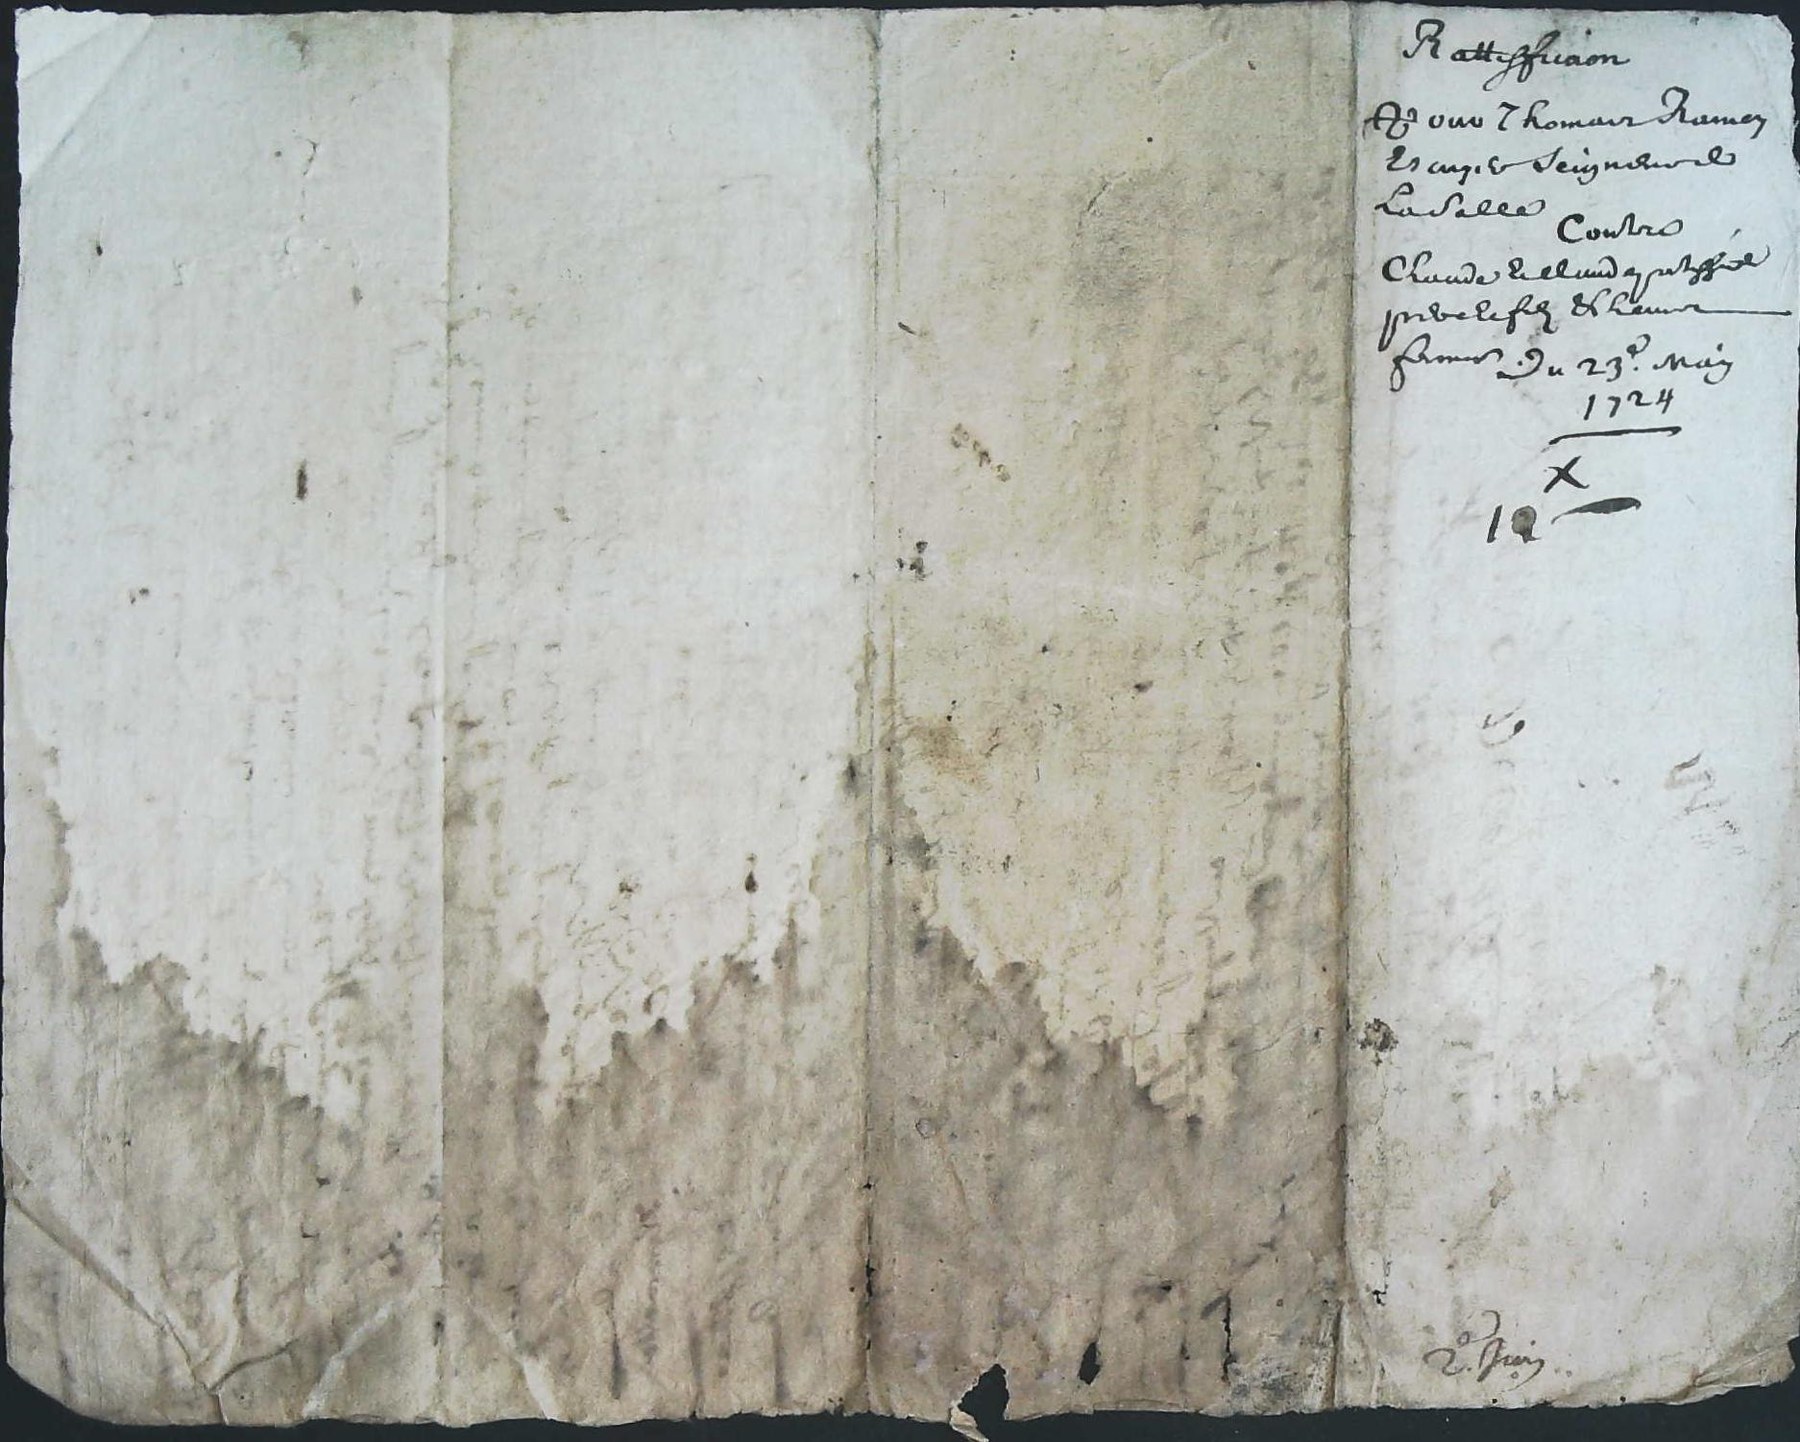 Rattiffication
Pour Thomas Ramey
Escuyer Seigneur de
La Salle
Contre
Claude
pere et fils
fermier Du 23e. May
1724
X
12
2e. Juin